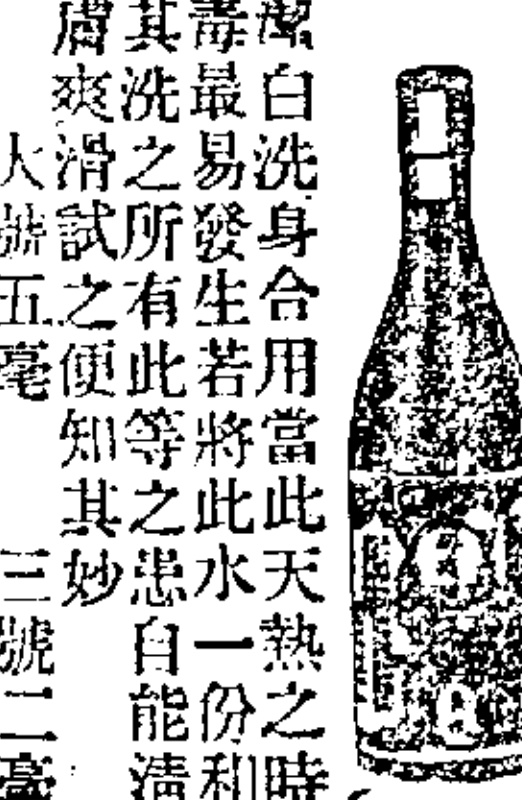 潔白洗身合用當此天熱之時
毒最易發生若將此水一份和
其洗之所有此等之患自能清
膚爽滑試之便知其妙
大號五毫 三號二毫